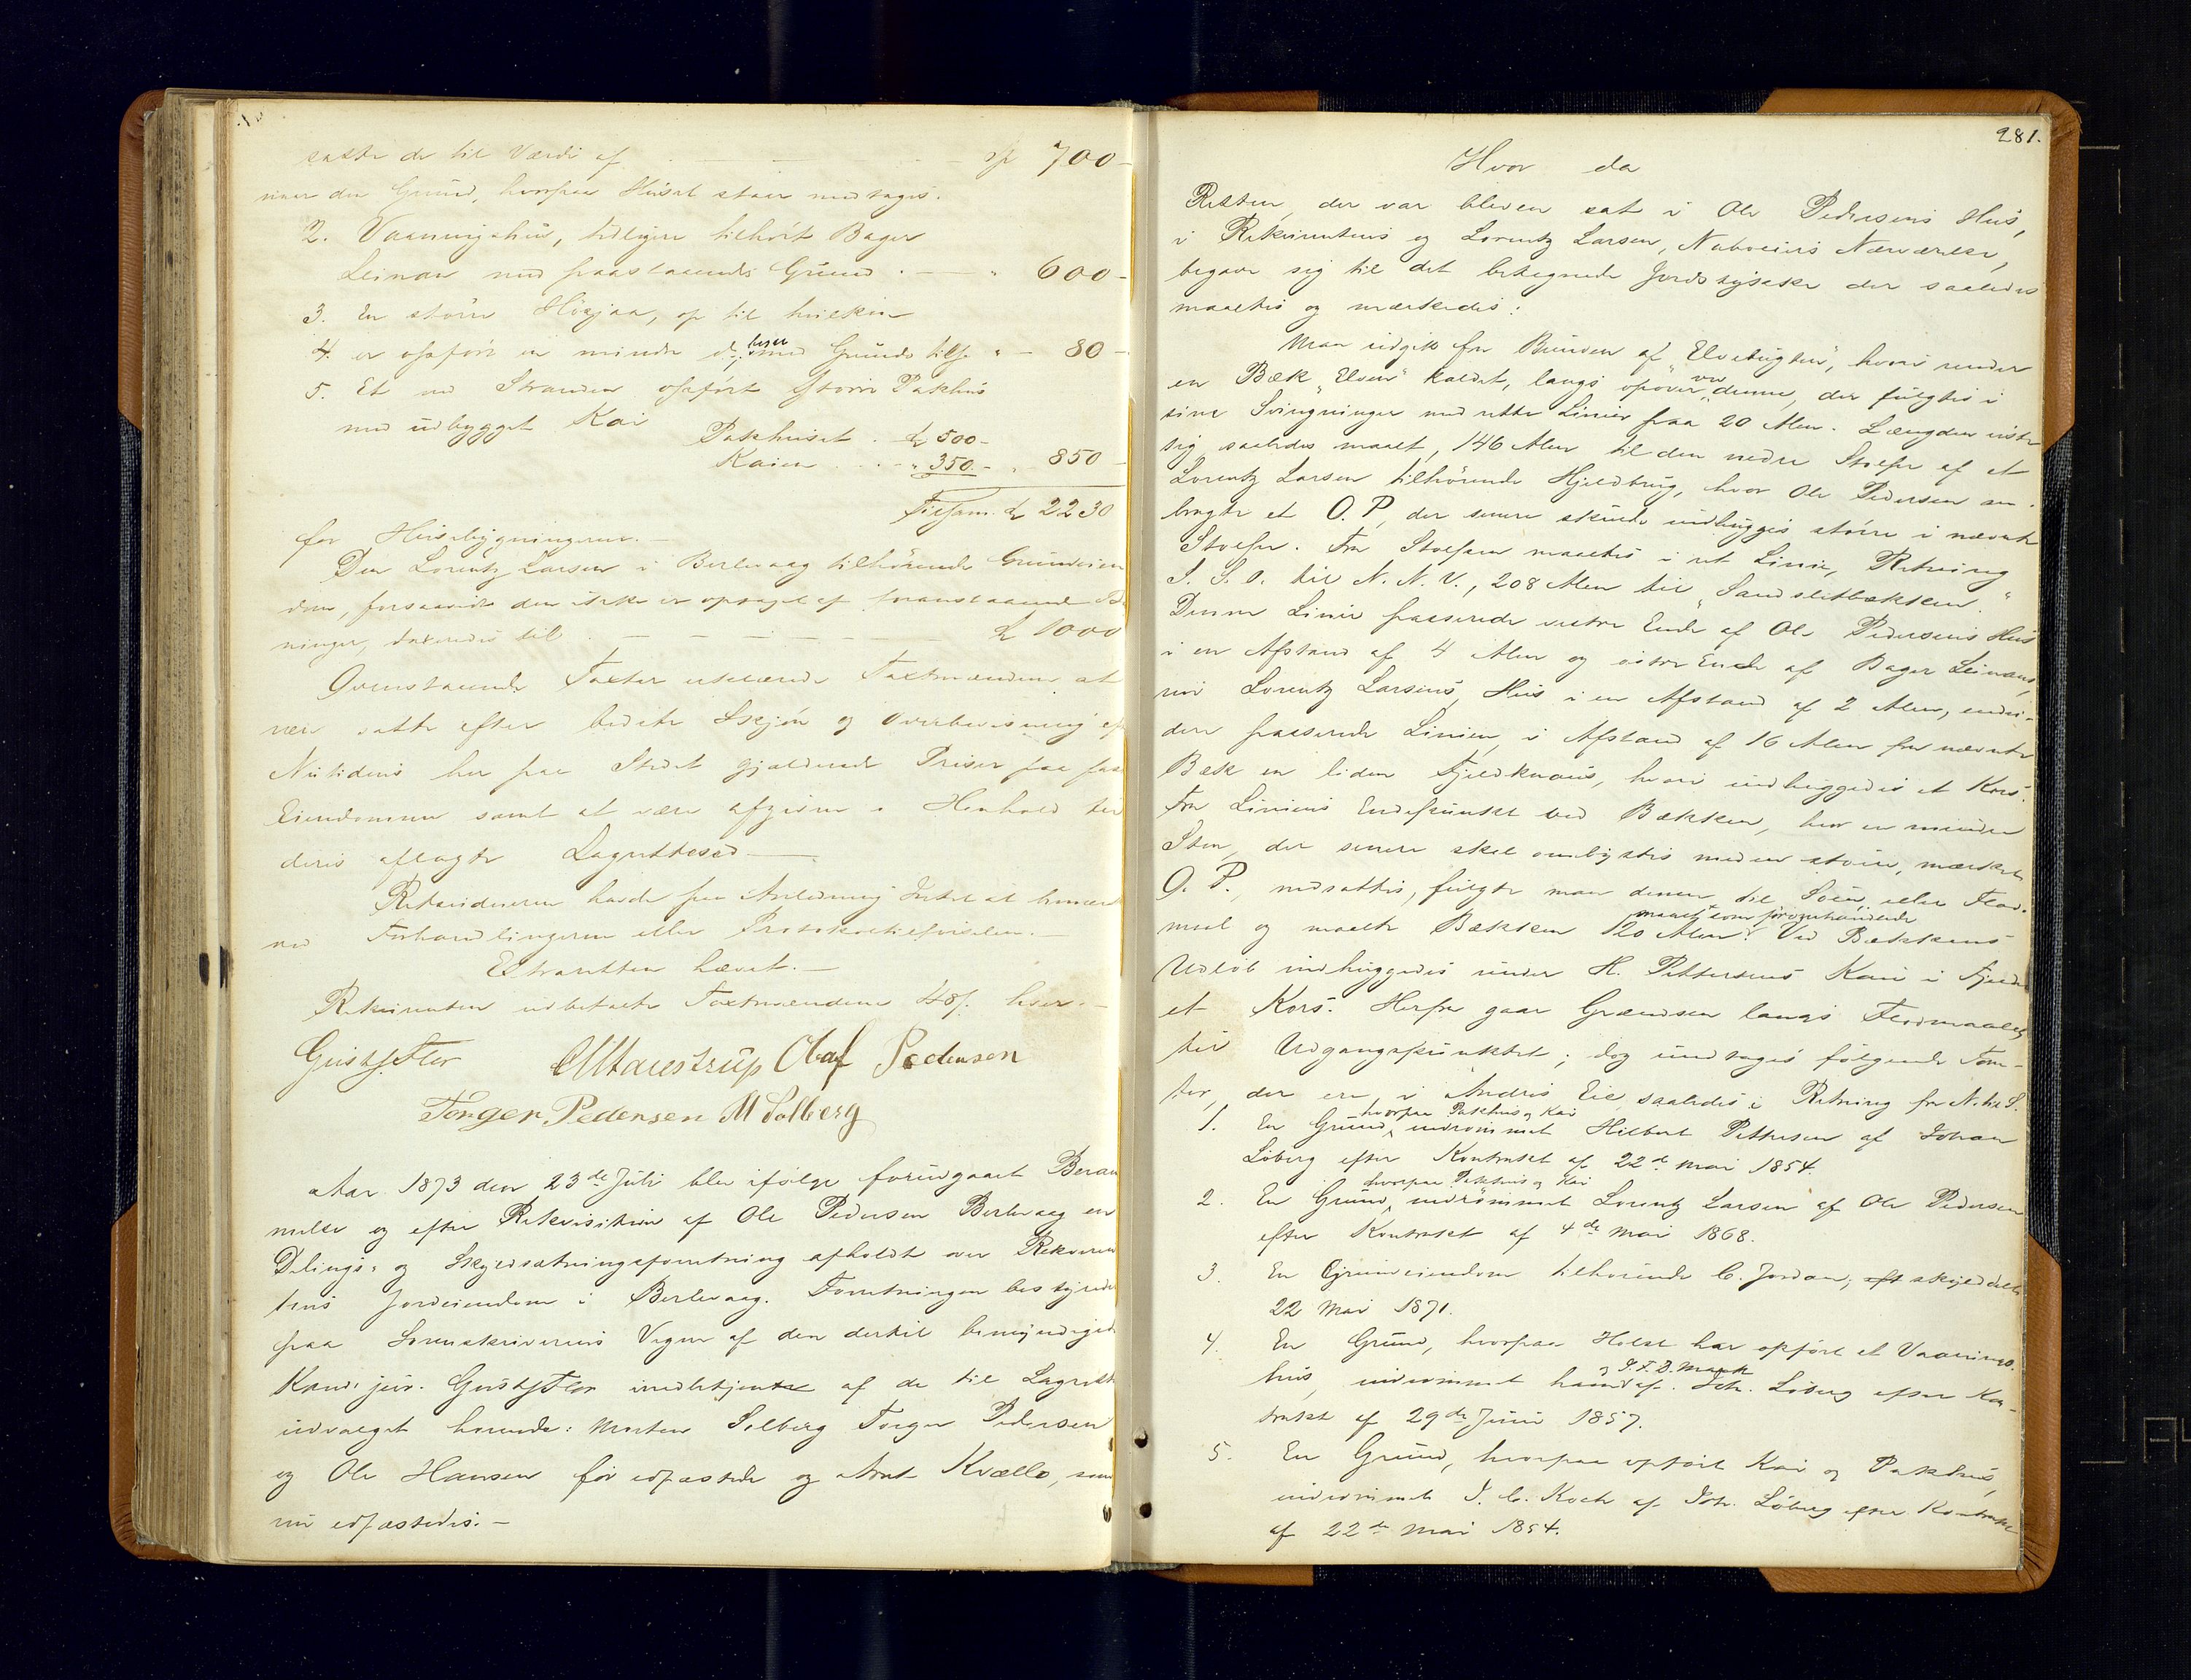 satte de til Værdi af — — — sp 700 –
naar den Grund, hvorpaa Huset staar medtages.
2. Vaaningshus, tidligere tilhørt Bager
Leinan med paastaaende Grund . — " 600 –
3. En større Høsjaa, op til hvilken
4. er opført en mindre do, beser med Grunde tils " – 80 –
5. Et ved Stranden opført større Pakhus
med udbygget Kai
Pakhuset . 500 –
Kaien . . . – " 350 – " 850 –
Tilsam. 2230
for Husebygningerne. –
Den Lorentz Larsen i Berlevaag tilhørende Grundeien
dom, forsaavidt den ikke er optaget af foranstaaende B
ninger, taxeredes til . — — — — — 1000
Ovenstaaende Taxter erklærede Taxtmændene at
være satte efter bedste Skjøn og Overbevisning ef
Nutidens her paa Stedet gjældende Priser paa fas
Eiendomme samt at være afgivne i Henhold til
deres aflagte Lagrettesed —
Rekvirenten havde paa Anledning Intet at bemærk
ved Forhandlingerne eller Protokoltilførselen. –
Extraretten hævet. –
Rekvirenten udbetalte Taxtmændene 48 hver. –
Gust Flor Olaf Pedensen
Torger Pedensen M Solberg
Aar 1873 den 23de Juli blev ifølge forudgaaet Beram
melse og efter Rekvisition af Ole Pedersen Berlevaag en
Delings- og Skyldsætningsforretning afholdt over Rekviren
tens Jordeiendom i Berlevaag. Forretningen bestyredes
paa Sorenskriverens Vegne af den dertil bemyndigede
Kand. jur. Gust Flor med af de til Lagrett
udvalget hørende: Morten Solberg Torger Pedersen
og Ole Hansen før edfæstede og Arnt Kvælle, som
nu edfæstedes. –
281.
Hvor da
Retten, der var bleven sat i Ole Pedersens Hus,
i Rekvirentens og Lorentz Larsen, Naboeiers Nærværelse,
begave sig til det betegnede Jordstykke der saaledes
maaltes og mærkedes:
Man udgik fra Bunden af "Elvebugten", hvori runder
en Bæk "Elven" kaldet, langs opover ved denne, der fulgtes i
sine Svingninger med rette Linier paa 20 Alen. Længden viste
sig saaledes maalt, 146 Alen til den nedre Stolpe af et
Lorentz Larsen tilhørende Hjeldbrug, hvor Ole Pedersen an-
bragte et O. P, der senere skulde indhugges større i nævnte
Stolpe. Fra Stolpen maaltes i ret Linie, Retning
S. S. O. til N. N. V., 208 Alen til "Sandsletbækken."
Denne Linie passerede vestre Ende af Ole Pedersens Hus
i en Afstand af 4 Alen og østre Ende af Bager Leinans,
nu Lorentz Larsens, Hus i en Afstand af 2 Alen, endvi-
dere passerede Linien i Afstand af 16 Alen fra nævnte
Bæk en liden Fjeldknaus, hvori indhuggedes et Kors.
Fra Liniens Endepunkt ved Bækken, hvor en mindre
Sten, der senere skal ombyttes med en større, mærket
O. P., nedsattes, fulgte man denne til Søen eller Flod-
maal og maalte Bækken 120 Alen maalt som forommeldende. Ved Bækkens
Udløb indhuggedes under H. Pettersens Kai i Fjeldet
et Kors. Herfra gaar Grændsen langs Flodmaalet
til Udgangspunktet; dog undtages følgende Tom-
ter, der ere i Andres Eie saaledes i Retning fra N. til S.
1. En Grund, hvorpaa Pakhus og Kai indrømmet Hilbert Pettersen af Johan
Løberg efter Kontrakt af 22de Mai 1854.
2. En Grund, hvorpaa Pakhus og Kai indrømmet Lorentz Larsen af Ole Pedersen
efter Kontrakt af 4de Mai 1868.
3. En Grundeiendom tilhørende C. Jordan, eft skylddelt
22 Mai 1871.
4. En Grund, hvorpaa Holst har opført et Vaanings-
hus, indrømmet ham af Joh. Løberg og J. F. D. Mack efter Kon-
trakt af 29de Juni 1857.
5. En Grund, hvorpaa opført Kai og Pakhus,
indrømmet J. C. Koch af Joh. Løberg efter Kontrakt
af 22de Mai 1854.